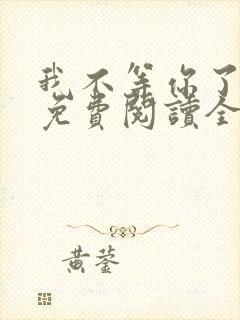 我不等你了
免費閱讀全
黃蓥